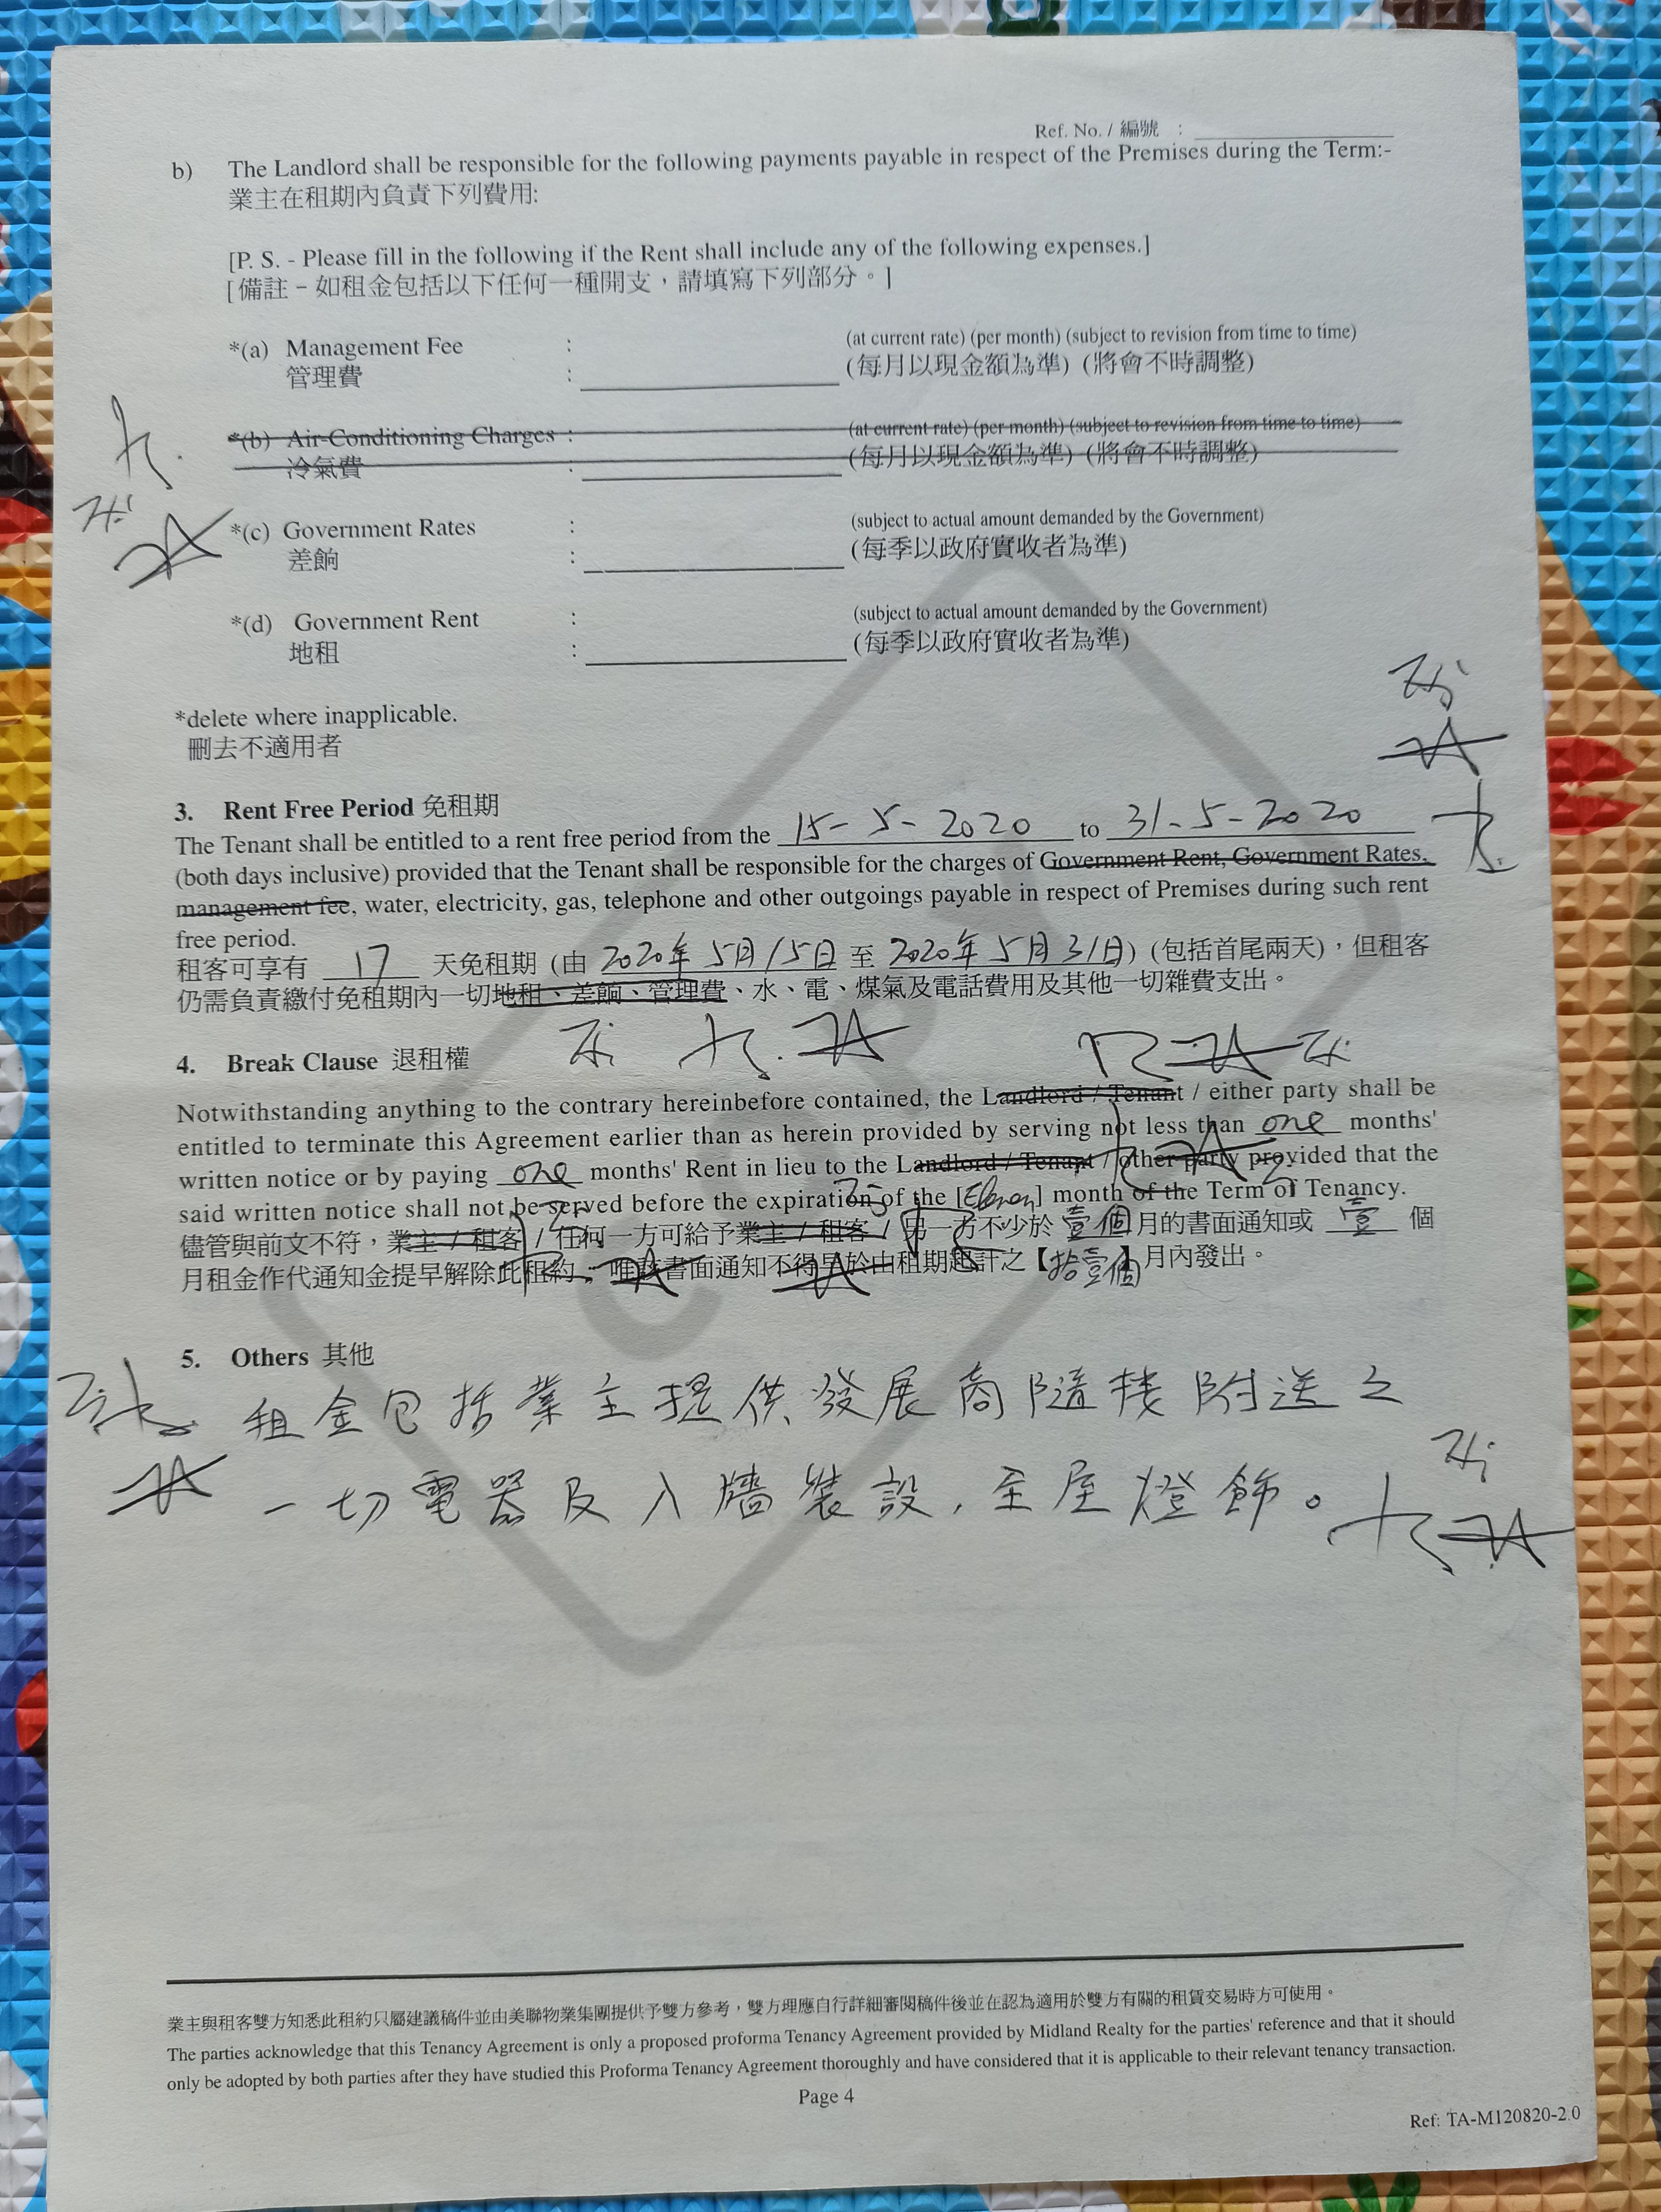 Ref. No. / 編號 :
b) The Landlord shall be responsible for the following payments payable in respect of the Premises during the Term:-
業主在租期內負責下列費用:
[P. S. - Please fill in the following if the Rent shall include any of the following expenses.]
[備註 – 如租金包括以下任何一種開支，請填寫下列部分。]
*(a) Management Fee : (at current rate) (per month) (subject to revision from time to time)
管理費 : (每月以現金額為準) (將會不時調整)
*(b) Air-Conditioning Charges : (at current rate) (per month) (subject to revision from time to time)
冷氣費 : (每月以現金額為準) (將會不時調整)
*(c) Government Rates : (subject to actual amount demanded by the Government)
差餉 : (每季以政府實收者為準)
*(d) Government Rent : (subject to actual amount demanded by the Government)
地租 : (每季以政府實收者為準)
*delete where inapplicable.
刪去不適用者
3. Rent Free Period 免租期
The Tenant shall be entitled to a rent free period from the 15-5-2020 to 31-5-2020
(both days inclusive) provided that the Tenant shall be responsible for the charges of Government Rent, Government Rates,
management fee, water, electricity, gas, telephone and other outgoings payable in respect of Premises during such rent
free period.
租客可享有 17 天免租期 (由 2020年5月15日 至 2020年5月31日) (包括首尾兩天)，但租客
仍需負責繳付免租期內一切地租、差餉、管理費、水、電、煤氣及電話費用及其他一切雜費支出。
4. Break Clause 退租權
Notwithstanding anything to the contrary hereinbefore contained, the Landlord / Tenant / either party shall be
entitled to terminate this Agreement earlier than as herein provided by serving not less than one months'
written notice or by paying one months' Rent in lieu to the Landlord / Tenant / other party provided that the
said written notice shall not be served before the expiration of the [Eleven] month of the Term of Tenancy.
儘管與前文不符，業主 / 租客 / 任何一方可給予業主 / 租客 / 另一方不少於 壹個 月的書面通知或 壹 個
月租金作代通知金提早解除此租約，唯該書面通知不得早於由租期起計之【拾壹個】月內發出。
5. Others 其他
租金包括業主提供發展商隨樓附送之
一切電器及入牆裝設，全屋燈飾。
業主與租客雙方知悉此租約只屬建議稿件並由美聯物業集團提供予雙方參考，雙方理應自行詳細審閱稿件後並在認為適用於雙方有關的租賃交易時方可使用。
The parties acknowledge that this Tenancy Agreement is only a proposed proforma Tenancy Agreement provided by Midland Realty for the parties' reference and that it should
only be adopted by both parties after they have studied this Proforma Tenancy Agreement thoroughly and have considered that it is applicable to their relevant tenancy transaction.
Page 4
Ref: TA-M120820-2.0